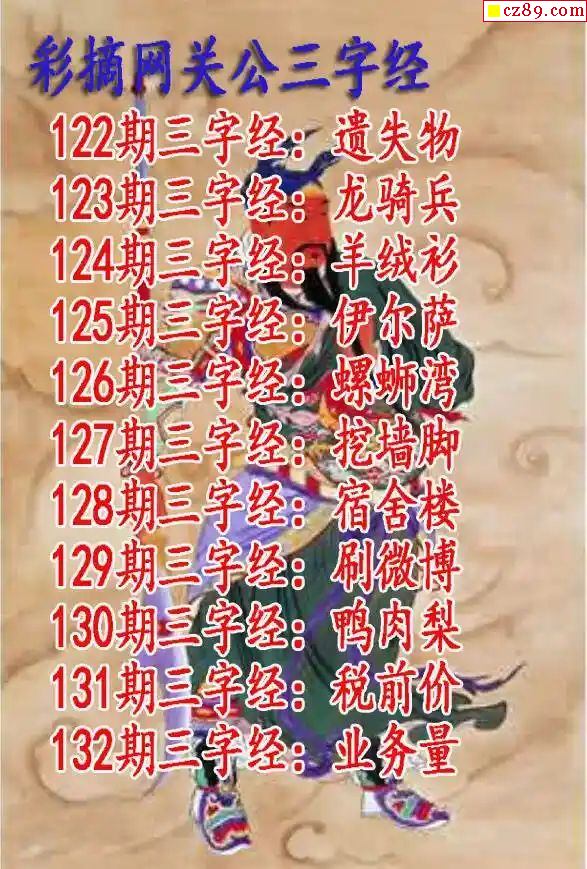 cz89.com
彩摘网关公三字经
122期三字经：遗失物
123期三字经：龙骑兵
124期三字经：羊绒衫
125期三字经：伊尔萨
126期三字经：螺蛳湾
127期三字经：挖墙脚
128期三字经：宿舍楼
129期三字经：刷微博
130期三字经：鸭肉梨
131期三字经：税前价
132期三字经：业务量